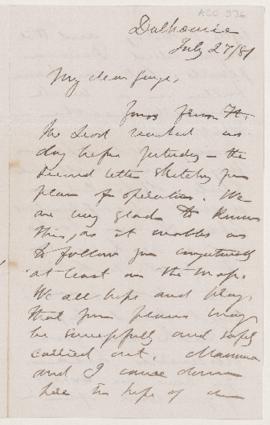 ACC 936
Dalhousie
July 27/81
My dear George,
Yours from Ft.
McLeod reached us
day before yesterday - the
second letter sketching your
plans of operation. We
are very glad to know
this, as it enables us
to follow you conjecturally
at least on the map.
We all hope and pray
that your plans may
be successfully and safely
carried out. Mamma
and I came down
here in hope of